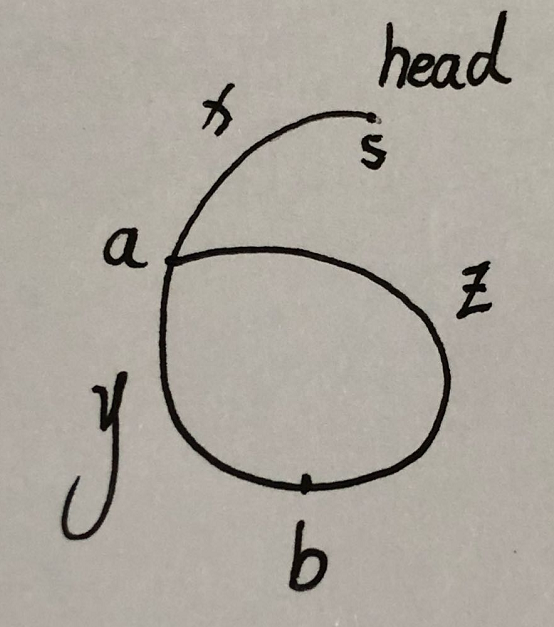 head
x
s
a
z
y
b